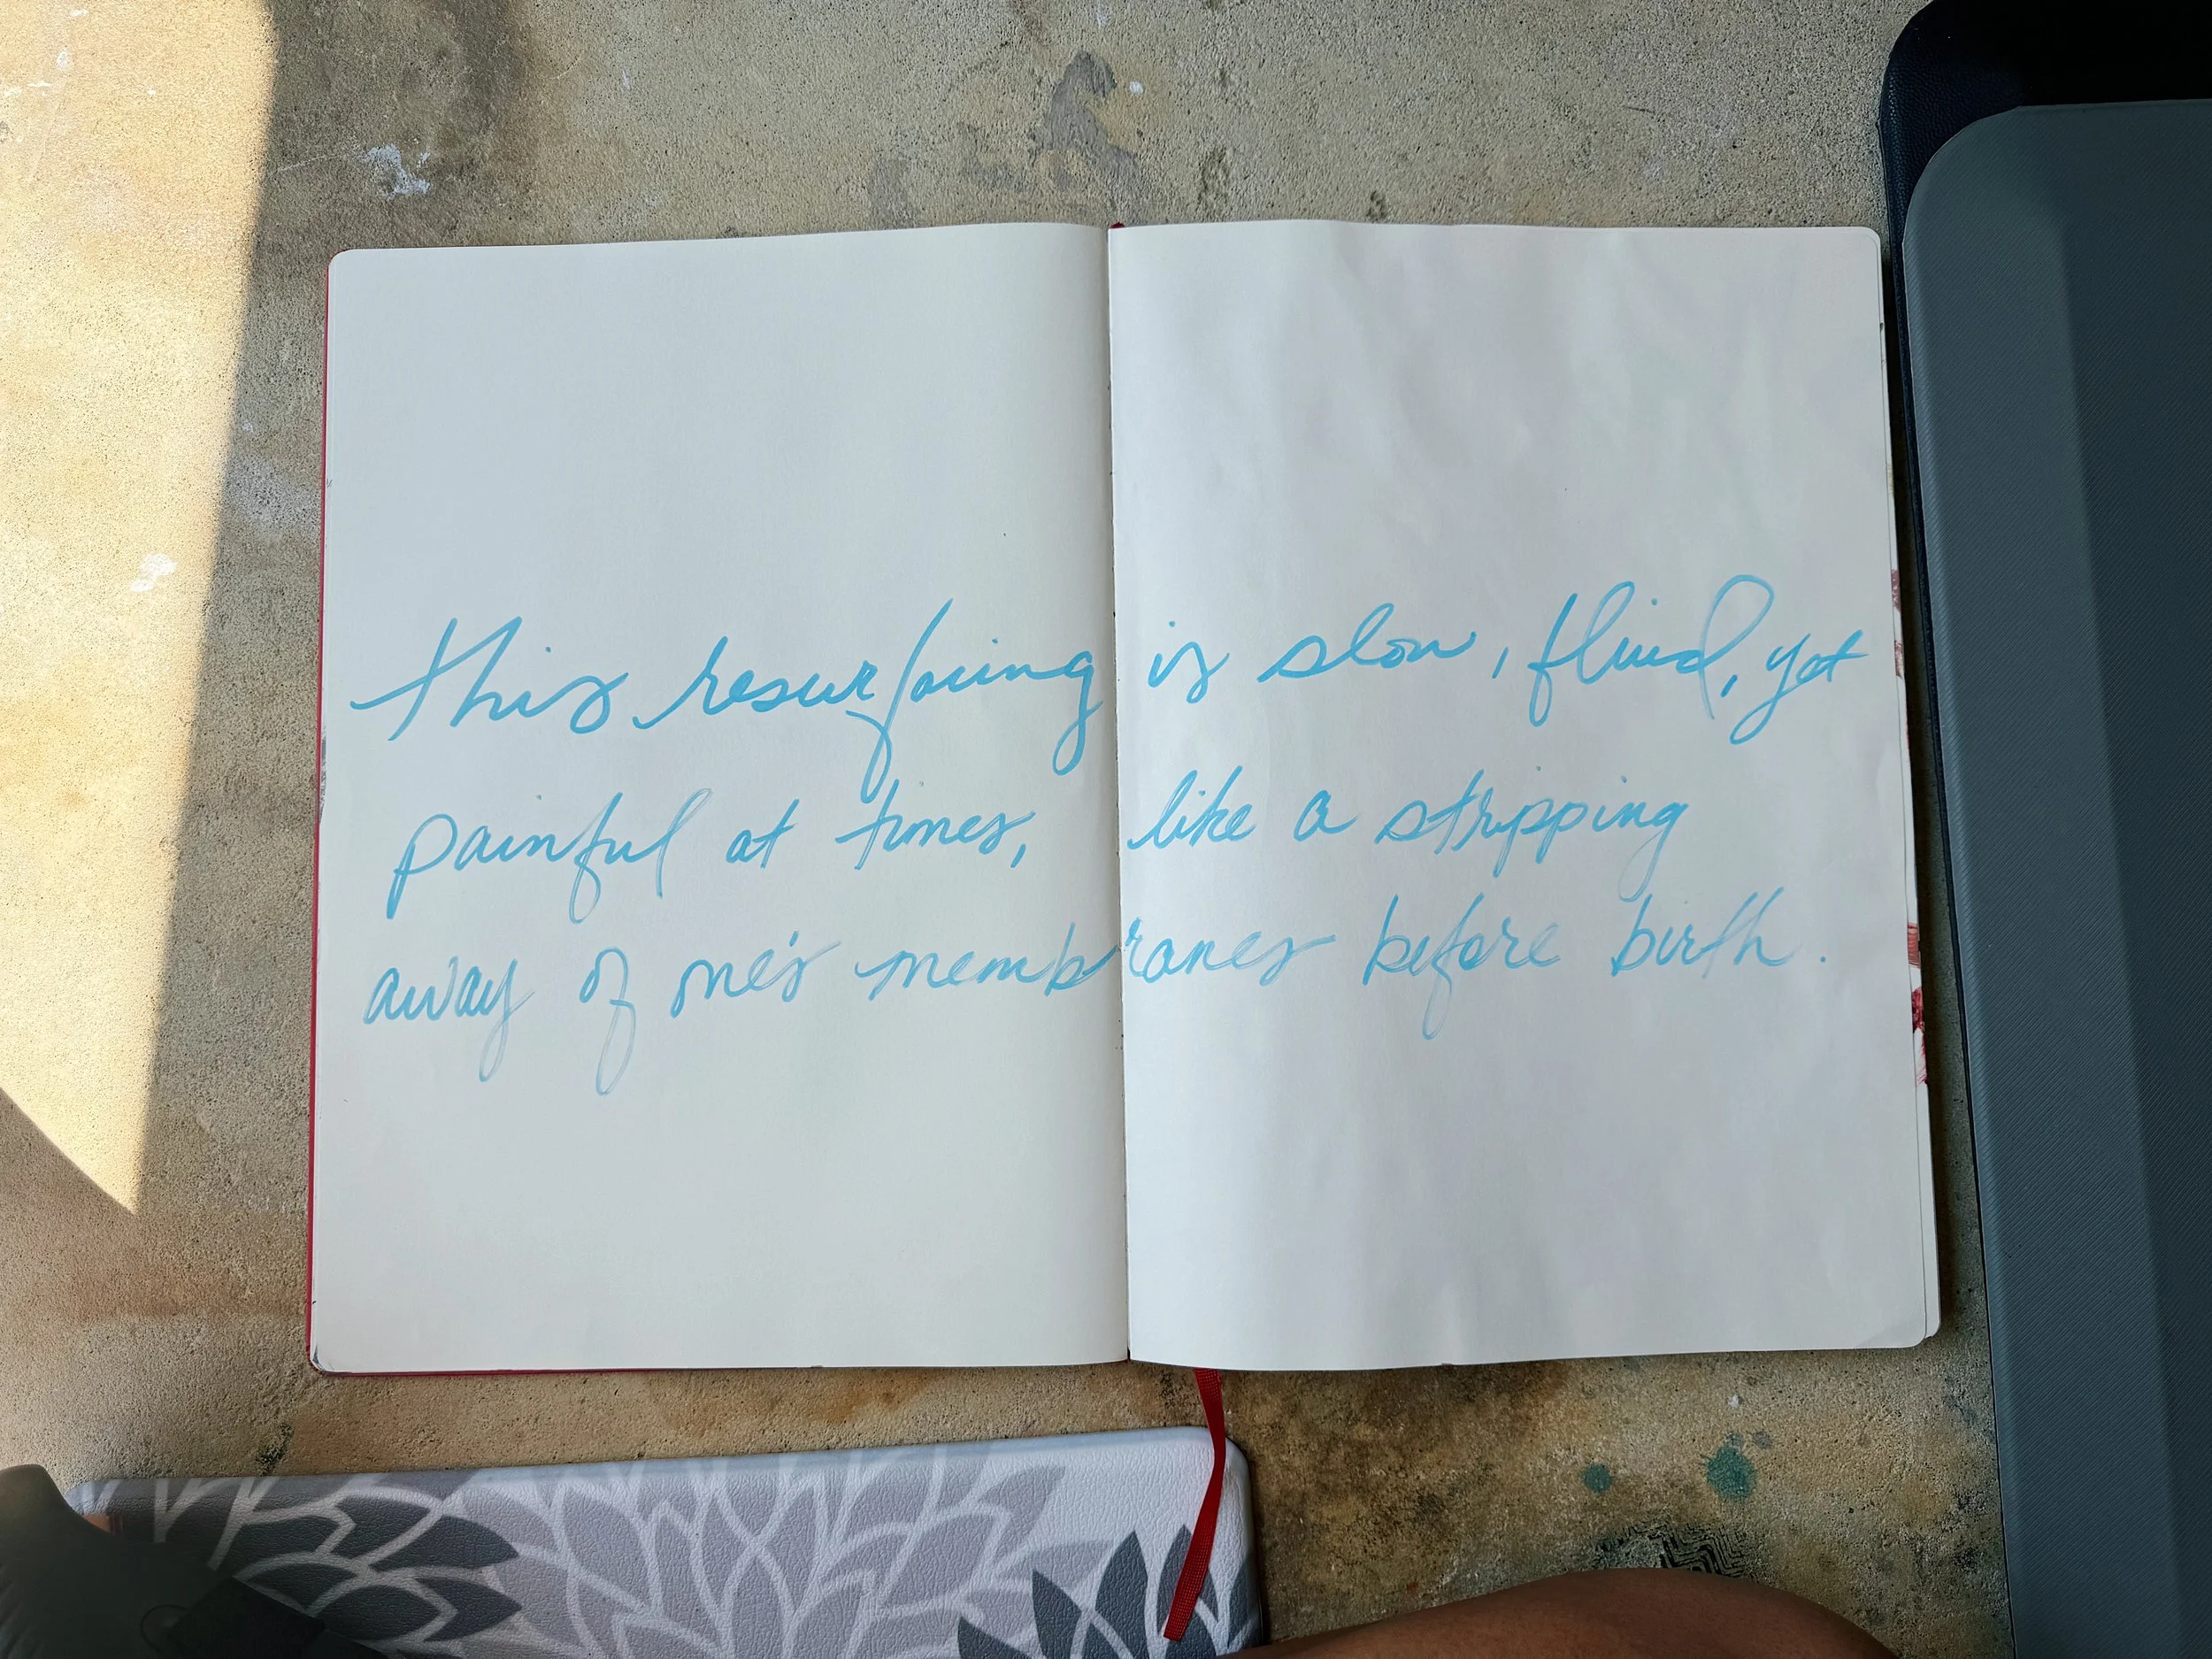 this resurfacing is slow, fluid, yet
painful at times, like a stripping
away of one's membranes before birth.